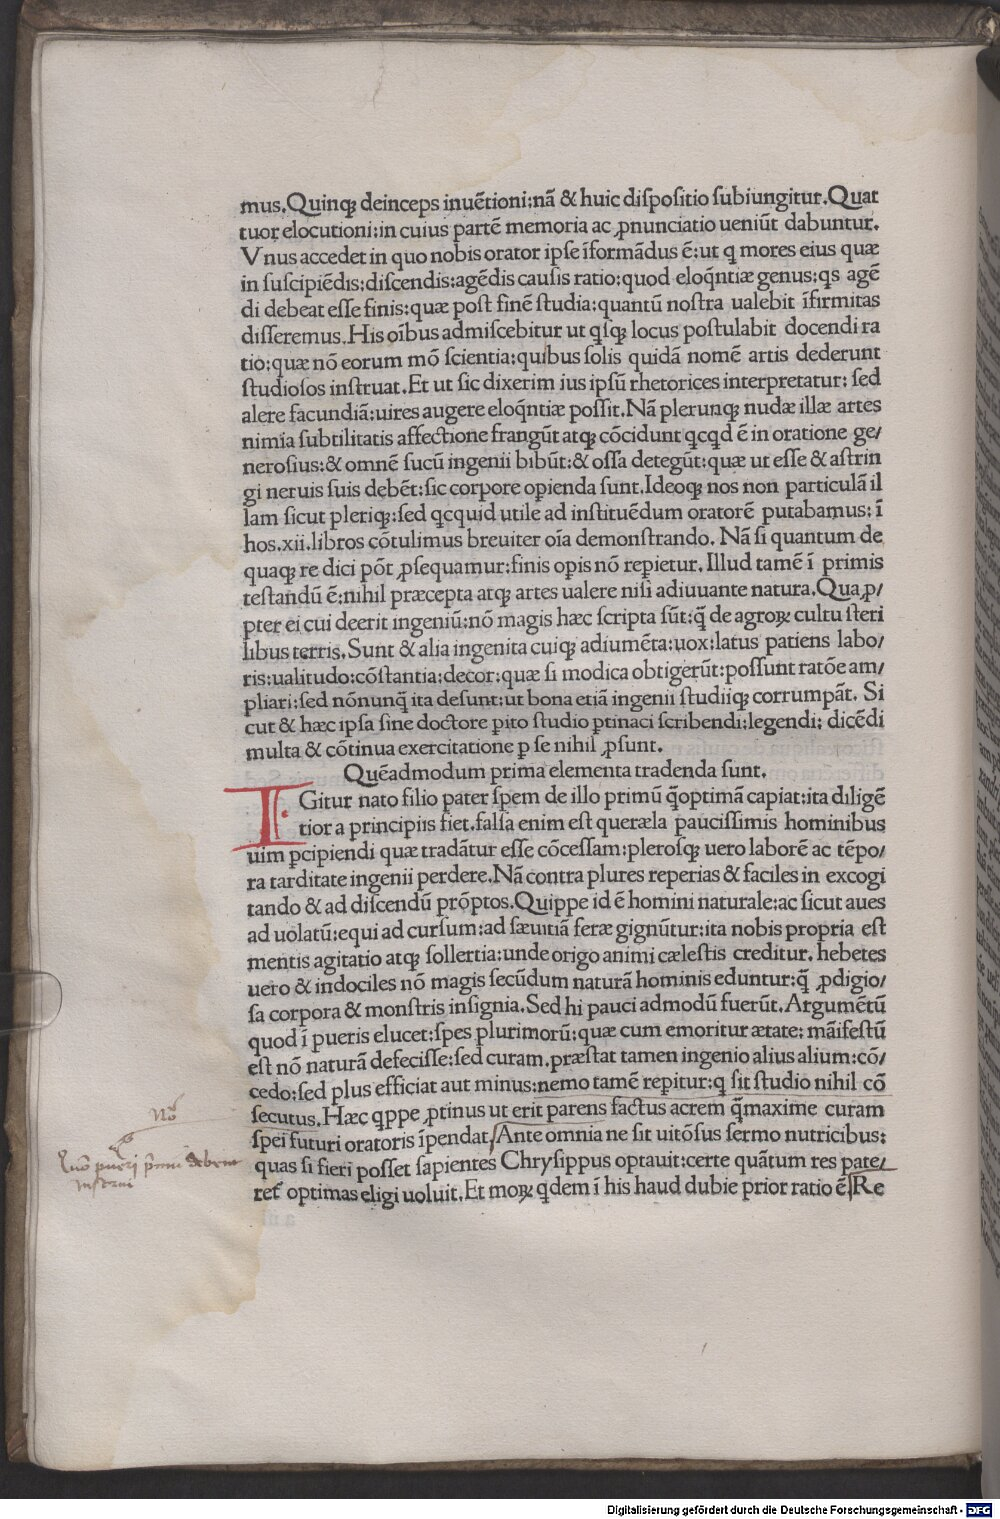 mus.Quinqꝫ deinceps inuẽtioni:nã & huic dispositio subiungitur.Quat
tuor elocutioni:in cuius partẽ memoria ac ꝓnunciatio ueniũt dabuntur.
Vnus accedet in quo nobis orator ipse ĩformãdus ẽ:ut q̨ mores eius quæ
in suscipiẽdis:discendis:agẽdis causis ratio:quod eloq̃ntiæ genus:qs agẽ
di debeat esse finis:quæ post finẽ studia:quantũ nostra ualebit ĩfirmitas
disseremus.His oĩbus admiscebitur ut qsqꝫ locus postulabit docendi ra
tio:quæ nõ eorum mõ scientia:quibus solis quidã nomẽ artis dederunt
studiosos instruat.Et ut sic dixerim ius ipsũ rhetorices interpretatur: sed
alere facundiã:uires augere eloq̃ntiæ possit.Nã plerunqꝫ nudæ illæ artes
nimia subtilitatis affectione frangũt atqꝫ cõcidunt qcqd ẽ in oratione ge/
nerosius:& omnẽ sucũ ingenii bibũt:& ossa detegũt:quæ ut esse & astrin
gi neruis suis debẽt:sic corpore oꝑienda sunt.Ideoqꝫ nos non particulã il
lam sicut pleriqꝫ:sed qcquid utile ad instituẽdum oratorẽ putabamus: ĩ
hos.xii.libros cõtulimus breuiter oĩa demonstrando. Nã si quantum de
quaqꝫ re dici põt ꝓsequamur:finis oꝑis nõ reꝑietur.Illud tamẽ ĩ primis
testandũ ẽ:nihil præcepta atqꝫ artes ualere nisi adiuuante natura.Quaꝓ/
pter ei cui deerit ingeniũ:nõ magis hæc scripta sũt:q̃ de agroꝝ cultu steri
libus terris.Sunt & alia ingenita cuiqꝫ adiumẽta:uox:latus patiens labo/
ris:ualitudo:cõstantia:decor:quæ si modica obtigerũt:possunt ratõe am/
pliari:sed nõnunq̃ ita desunt:ut bona etiã ingenii studiiqꝫ corrumpãt. Si
cut & hæc ipsa sine doctore ꝑito studio ꝑtinaci scribendi:legendi: dicẽdi
multa & cõtinua exercitatione ꝑ se nihil ꝓsunt.
Quẽadmodum prima elementa tradenda sunt.
IGitur nato filio pater spem de illo primũ q̃optimã capiat:ita diligẽ
tior a principiis fiet.falsa enim est queræla paucissimis hominibus
uim ꝑcipiendi quæ tradãtur esse cõcessam:plerosqꝫ uero laborẽ ac tẽpo/
ra tarditate ingenii perdere.Nã contra plures reperias & faciles in excogi
tando & ad discendũ prõptos.Quippe id ẽ homini naturale:ac sicut aues
ad uolatũ:equi ad cursum:ad sæuitiã feræ gignũtur:ita nobis propria est
mentis agitatio atqꝫ sollertia:unde origo animi cælestis creditur. hebetes
uero & indociles nõ magis secũdum naturã hominis eduntur:q̃ ꝓdigio/
sa corpora & monstris insignia.Sed hi pauci admodũ fuerũt.Argumẽtũ
quod ĩ pueris elucet:spes plurimorũ:quæ cum emoritur ætate: mãifestũ
est nõ naturã defecisse:sed curam.præstat tamen ingenio alius alium:cõ/
cedo:sed plus efficiat aut minus:nemo tamẽ reꝑitur:q̨ sit studio nihil cõ
secutus.Hæc qppe ꝓtinus ut erit parens factus acrem q̃maxime curam
spei futuri oratoris ĩpendat/Ante omnia ne sit uitõsus sermo nutricibus:
quas si fieri posset sapientes Chrysippus optauit:certe quãtum res pate/
ret̃ optimas eligi uoluit.Et moꝝ qdem ĩ his haud dubie prior ratio ẽ/Re
Nõ
Quõ pueri primi debent
instrui
Digitalisierung gefördert durch die Deutsche Forschungsgemeinschaft - DFG